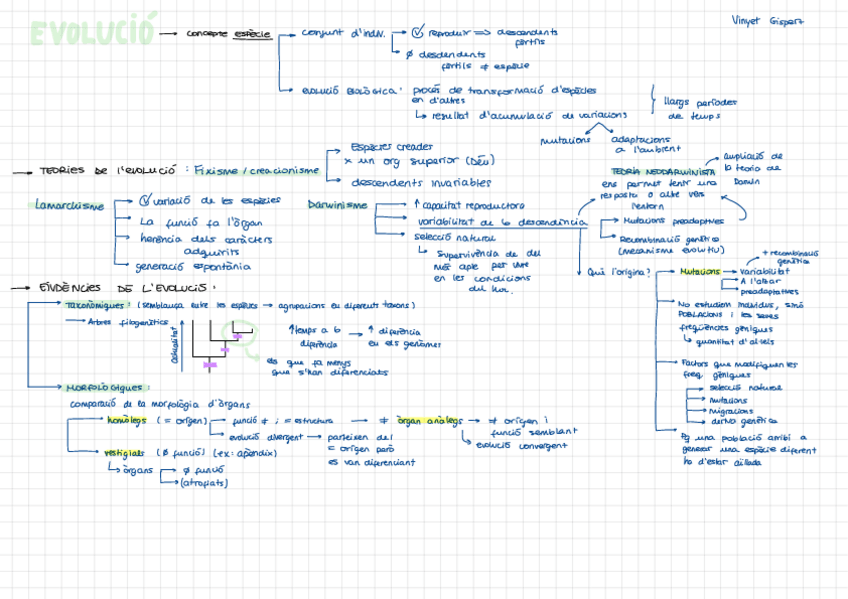 Vinyet Gispert
EVOLUCIÓ
concepte espècie
conjunt d'indiv.
reproduir => descendents
fèrtils
ø descendents
fèrtils ≠ espècie
EVOLUCIÓ BIOLÒGICA: procés de transformació d'espècies
en d'altres
↳ resultat d'acumulació de variacions
llargs períodes
de temps
mutacions
adaptacions
a l'ambient
TEORIES DE L'EVOLUCIÓ: Fixisme/creacionisme
Espècies creades
x un org superior (DÉU)
descendents invariables
Lamarckisme
variació de les espècies
La funció fa l'òrgan
herència dels caràcters
adquirits
generació espontània
Darwinisme
↑ capacitat reproductora
variabilitat de la descendència
selecció natural
↳ Supervivència de
més apte per viure
en les condicions
del lloc.
TEORIA NEODARWINISTA
ens permet tenir una
resposta a
l'entorn
ampliació de
la teoria de
Darwin
Mutacions preadaptives
Recombinació genètica
(mecanisme evolutiu)
Quin l'origina?
Mutacions → variabilitat
+ recombinació
genètica
A l'atzar
preadaptatives
No estudiem individus, sinó
POBLACIONS i les seves
freqüències gèniques
↳ quantitat d'al·lels
Factors que modifiquen les
freq. gèniques
selecció natural
mutacions
migracions
deriva genètica
Pq una població arribi a
generar una espècie diferent
ha d'estar aïllada
EVIDÈNCIES DE L'EVOLUCIÓ:
TAXONÒMIQUES: (semblança entre les espècies → agrupacions en diferents taxons)
→ Arbres filogenètics
actualitat
↑ temps a la
diferència
→ ↑ diferència
en els genomes
els que fa menys
que s'han diferenciats
MORFOLÒGIQUES:
comparació de la morfologia d'òrgans
homòlegs (= origen)
funció ≠ i = estructura → ≠ òrgan anàlegs → ≠ origen i
funció semblant
evolució convergent
evolució divergent → parteixen del
= origen però
es van diferenciant
vestigials (ø funció) (ex: apèndix)
↳ òrgans
ø funció
(atrofiats)